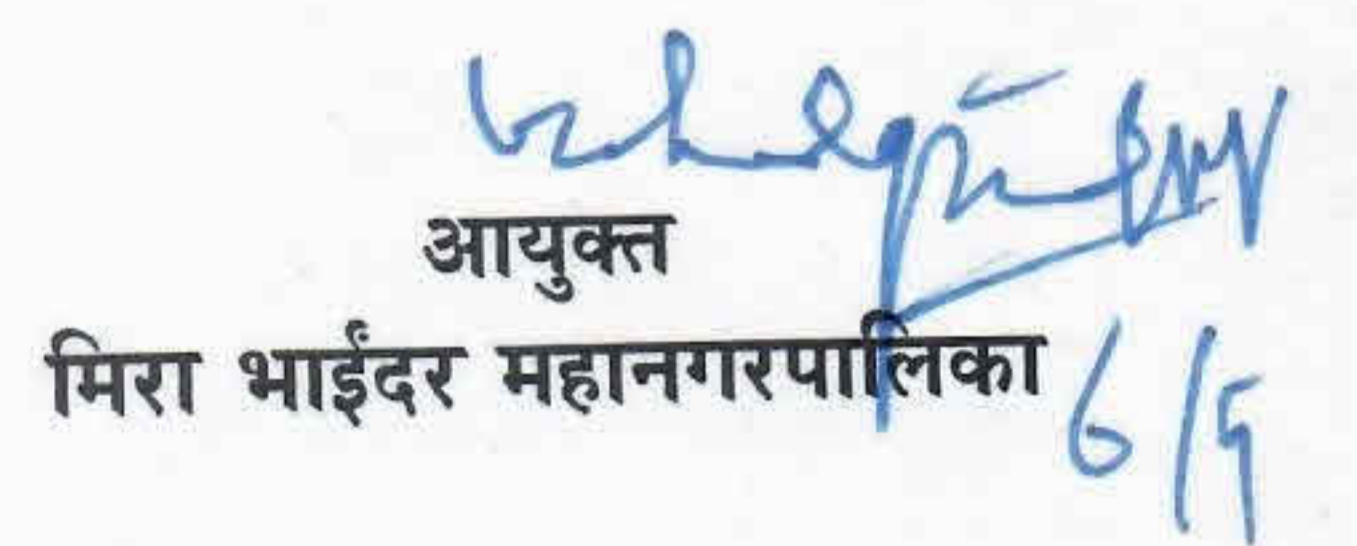 आयुक्त
मिरा भाईंदर महानगरपालिका